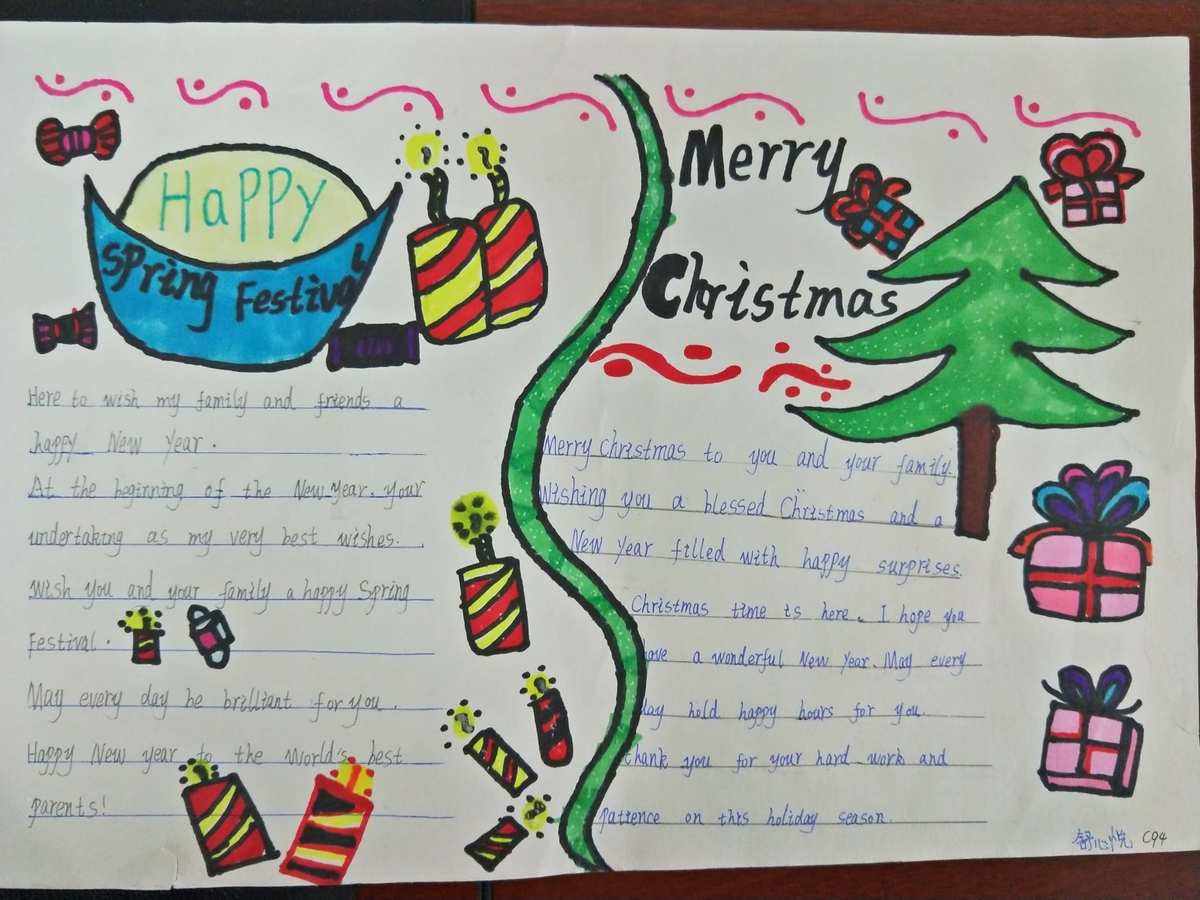 Happy
Spring Festival
Here to wish my family and friends a
happy New Year.
At the beginning of the New Year. your
undertaking as my very best wishes.
wish you and your family a happy Spring
Festival.
May every day be brilliant for you.
Happy New year to the World's best
parents!
Merry
Christmas
Merry Christmas to you and your family.
Wishing you a blessed Christmas and a
New Year filled with happy surprises.
Christmas time is here. I hope you
have a wonderful New Year. May every
day hold happy hours for you.
thank you for your hard work and
patience on this holiday season.
舒心悦 C94